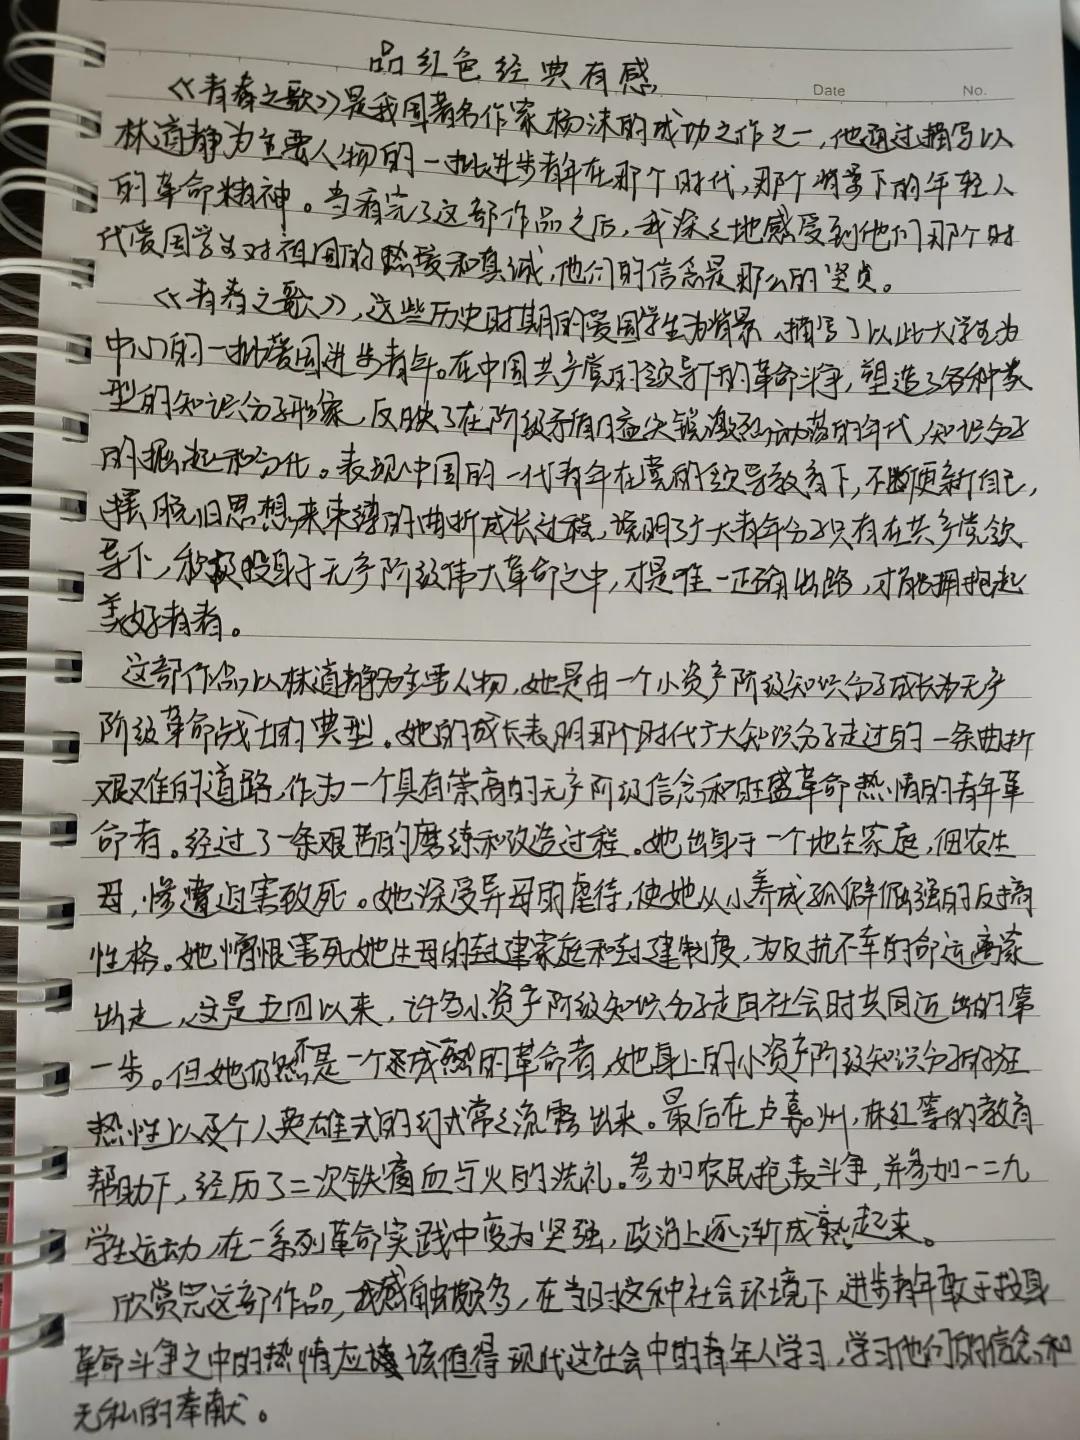 品红色经典有感
Date No.
《青春之歌》是我国著名作家杨沫的成功之作之一,他通过描写以
林道静为主要人物的一批进步青年在那个时代,那个背景下的年轻人
的革命精神。当看完了这部作品之后,我深深地感受到他们那个时
代爱国学生对祖国的热爱和真诚,他们的信念是那么的坚贞。
《青春之歌》,这些历史时期的爱国学生为背景,描写了以此大学生为
中心的一批爱国进步青年。在中国共产党的领导下的革命斗争,塑造了各种类
型的知识分子形象,反映了在阶级矛盾日益尖锐激烈动荡的年代,知识分子
的掘起和分化。表现中国的一代青年在党的领导教育下,不断更新自己,
摆脱旧思想来束缚的曲折成长过程,说明了广大青年分子只有在共产党领
导下,积极投身于无产阶级伟大革命之中,才是唯一正确出路,才能拥抱起
美好青春。
这部作品以林道静为主要人物,她是由一个小资产阶级知识分子成长为无产
阶级革命战士的典型。她的成长表明那个时代广大知识分子走过的一条曲折
艰难的道路,作为一个具有崇高的无产阶级信念和旺盛革命热情的青年革
命者。经过了一条艰苦的磨练和改造过程。她出身于一个地主家庭,佃农生
母,惨遭迫害致死。她深受异母的虐待,使她从小养成孤僻倔强的反抗
性格。她憎恨害死她生母的封建家庭和封建制度,为反抗不幸的命运离家
出走,这是五四以来,许多小资产阶级知识分子走向社会时共同迈出的第
一步。但她仍然不是一个成熟的革命者,她身上的小资产阶级知识分子的狂
热性以及个人英雄式的幻式常之流露出来。最后在卢嘉州,林红等的教育
帮助下,经历了二次铁窗血与火的洗礼。参加农民抢麦斗争,并参加一二九
学生运动,在一系列革命实践中变为坚强,政治上逐渐成熟起来。
欣赏完这部作品,我感触颇多,在当时这种社会环境下,进步青年敢于投身
革命斗争之中的热情应该值得现代这社会中的青年人学习,学习他们的信念和
无私的奉献。